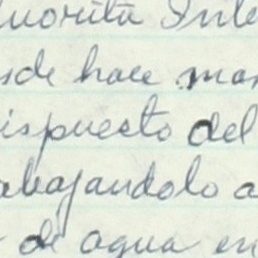 uorita Inte
sde hace mas
ispuesto del
abajandolo a
de agua en